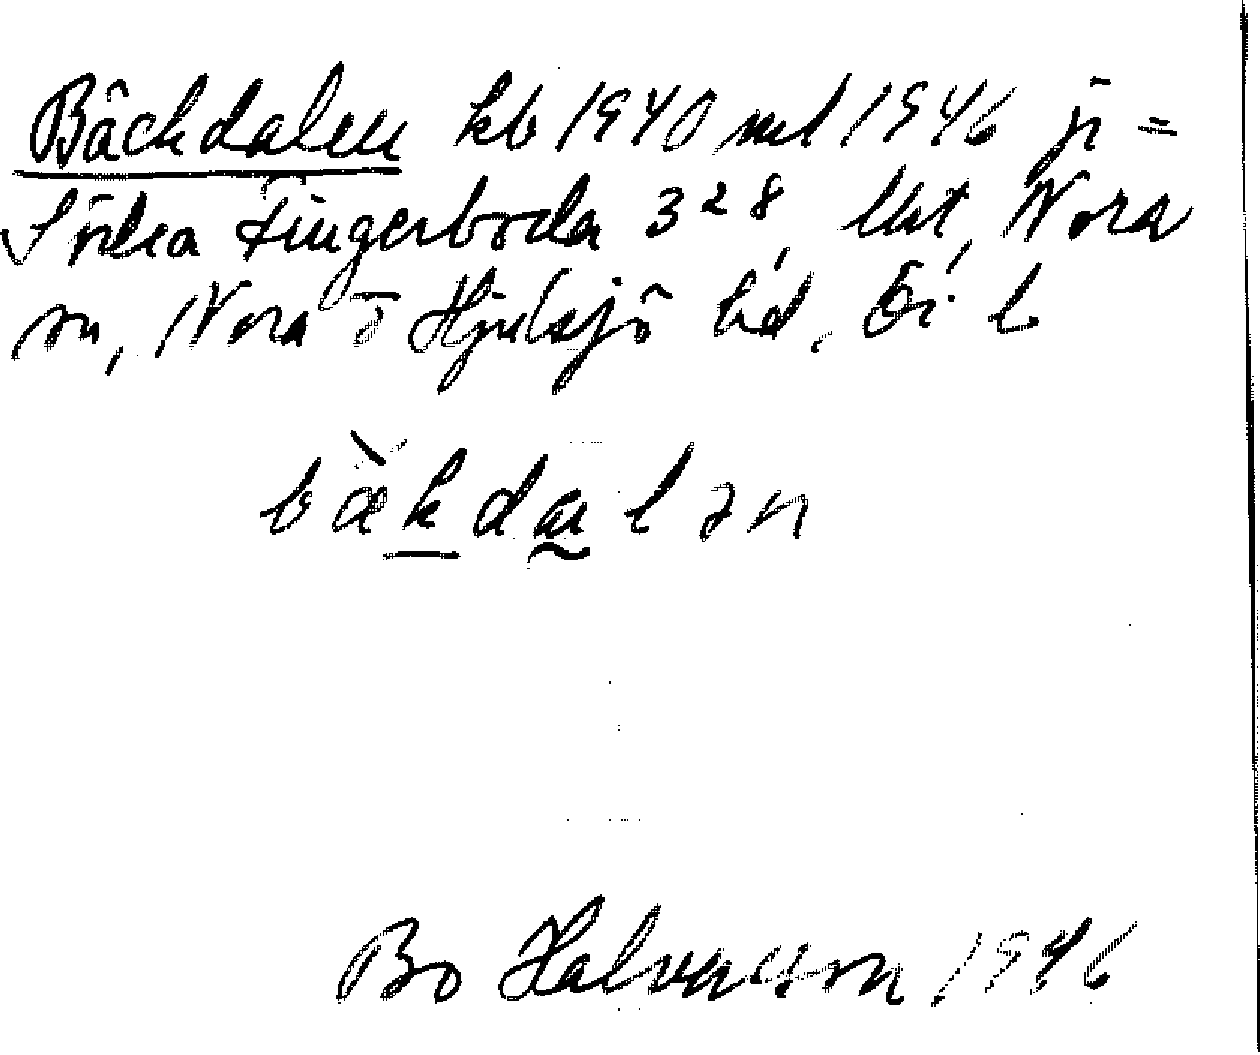 Bäckdalen kb 1940 ml 1946 ji =
Södra Fingerboda 3²⁸, Nora
sn, Nora o Hjulsjö bd, Ör l
bäkdalən
Bo Halvarson 1946